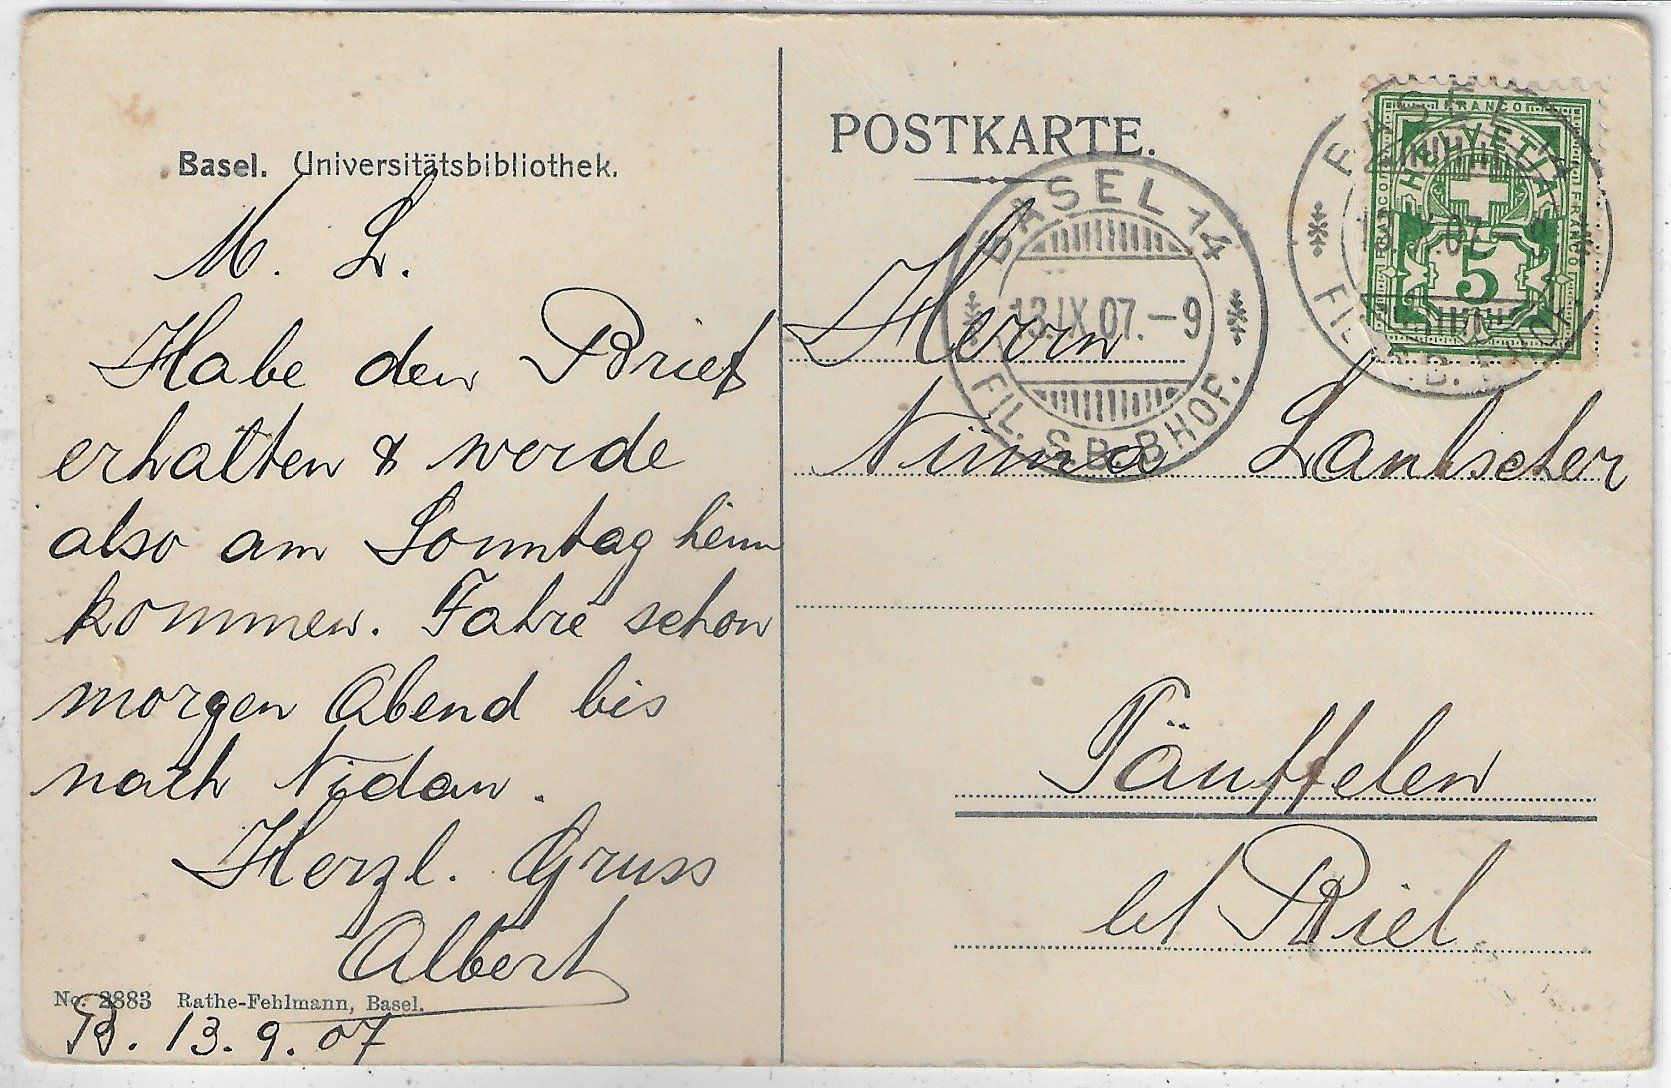 Basel. Universitätsbibliothek.
M. L.
Habe den Brief
erhalten & werde
also am Sonntag heim
kommen. Fahre schon
morgen Abend bis
nach Nidau.
Herzl. Gruss
Albert
No. 2883 Rathe-Fehlmann, Basel.
B. 13.9.07
POSTKARTE.
BASEL 14
13.IX.07.-9
FIL. S.B.BHOF.
FRANCO
HELVETIA
FRANCO
FRANCO
5
07.-9
Herrn
Numa Laubscher
Täuffelen
bt Biel